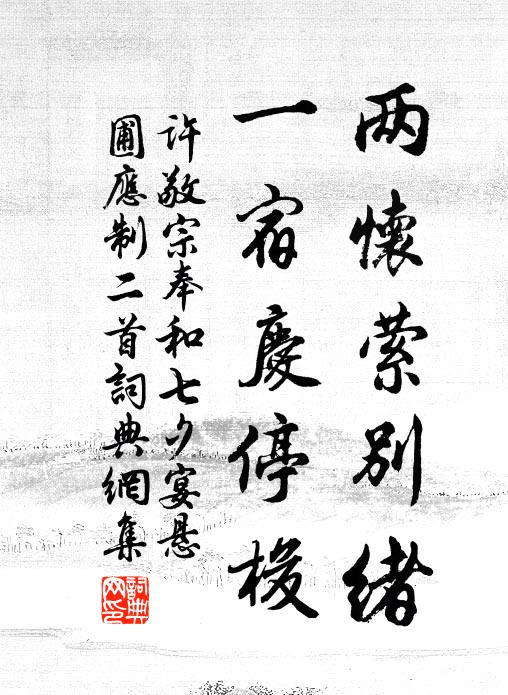 两怀萦别绪
一宿庆停梭
許敬宗奉和七夕宴悬
圃應制二首詞典網集
詞典
网